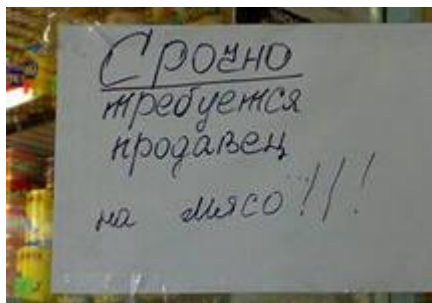 Срочно
требуется
продавец
на мясо!!!